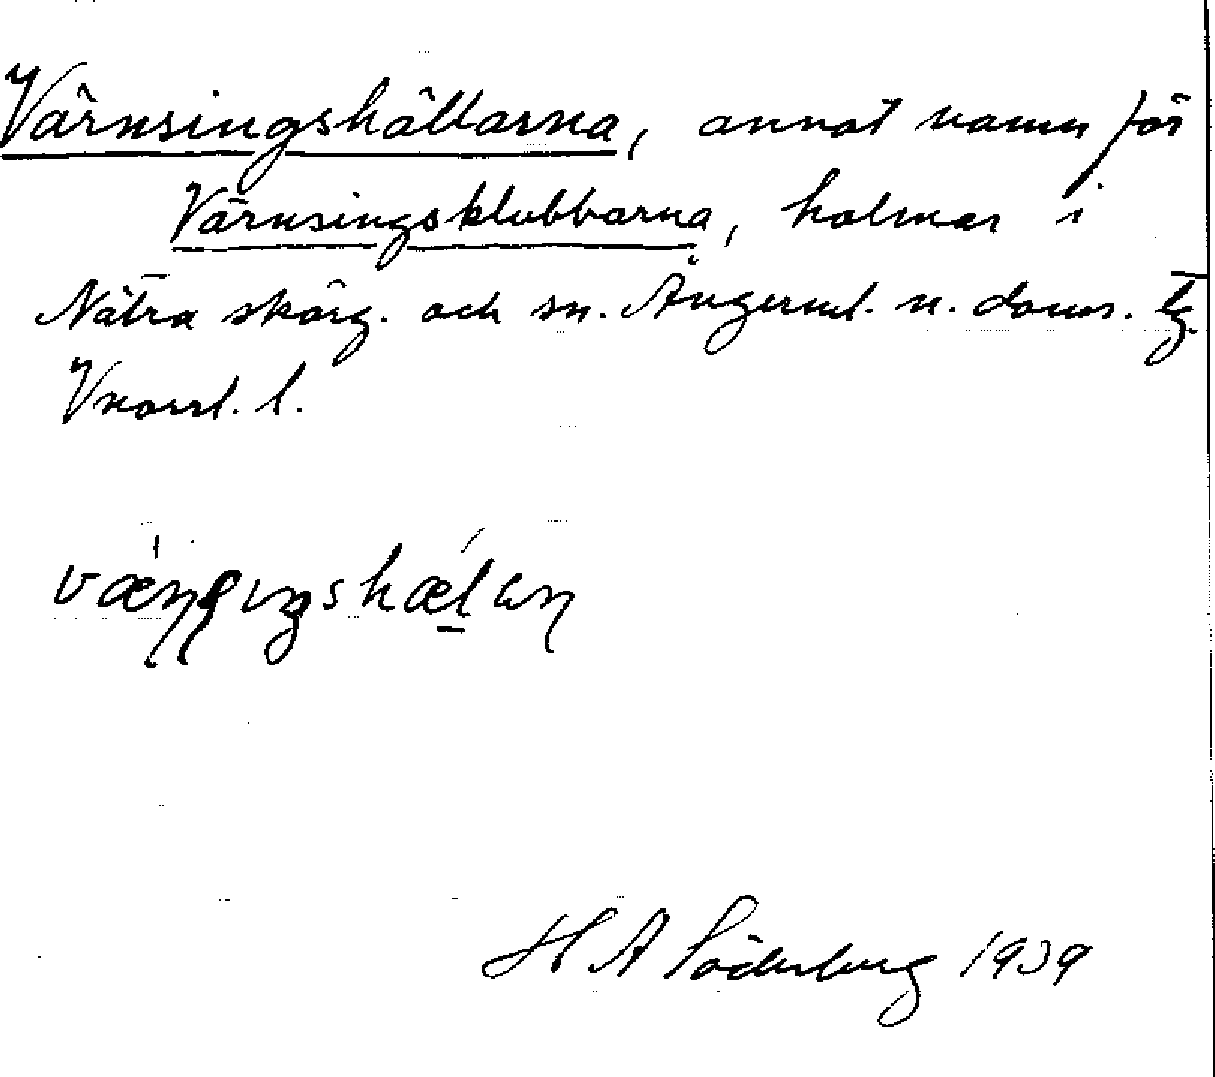 Värnsingshällarna, annat namn för
Värnsingsklubbarna, holmar i
Nätra skärg. och sn. Ångerml. n. doms. tg
Vnorrl. l.
H A Söderberg 1939